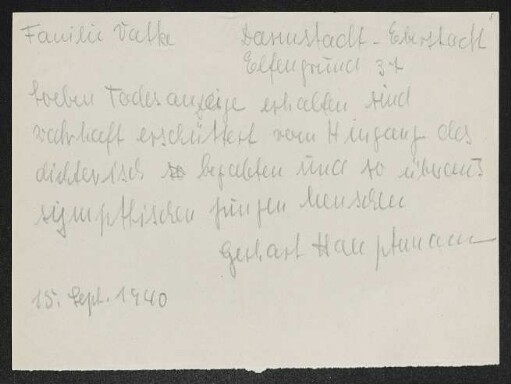 Familie Vatke Darmstadt-Eberstadt
Elfengrund 37
soeben Todesanzeige erhalten sind
wahrhaft erschüttert vom Hingang des
dichterisch begabten und so überaus
sympthischen jungen Menschen
Gerhart Hauptmann
15. Sept. 1940